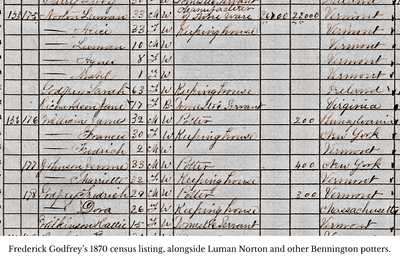 Manufacturer
175 Norton Luman 33 M W of Stone Ware 22000 Vermont
— 33 F W Keeping house Vermont
— Luman 10 M W Vermont
— Agnes 8 F W Vermont
— 1 F W Vermont
Godfrey Sarah 63 F W Keeping house Ireland
Richardson Jane 17 F B Domestic Servant Virginia
176 James 32 M W Potter 200 Pennsylvania
— Francis 30 F W Keeping house New York
— Fredrick 2 M W Vermont
177 Johnson 33 M W Potter 400 New York
— Marietta 32 F W Keeping house Vermont
178 Fredrich 29 M W Potter 300 Vermont
— Dora 26 F W Keeping house Massachusetts
Wilkinson Hattie 15 F W Domestic Servant Vermont
Frederick Godfrey's 1870 census listing, alongside Luman Norton and other Bennington potters.